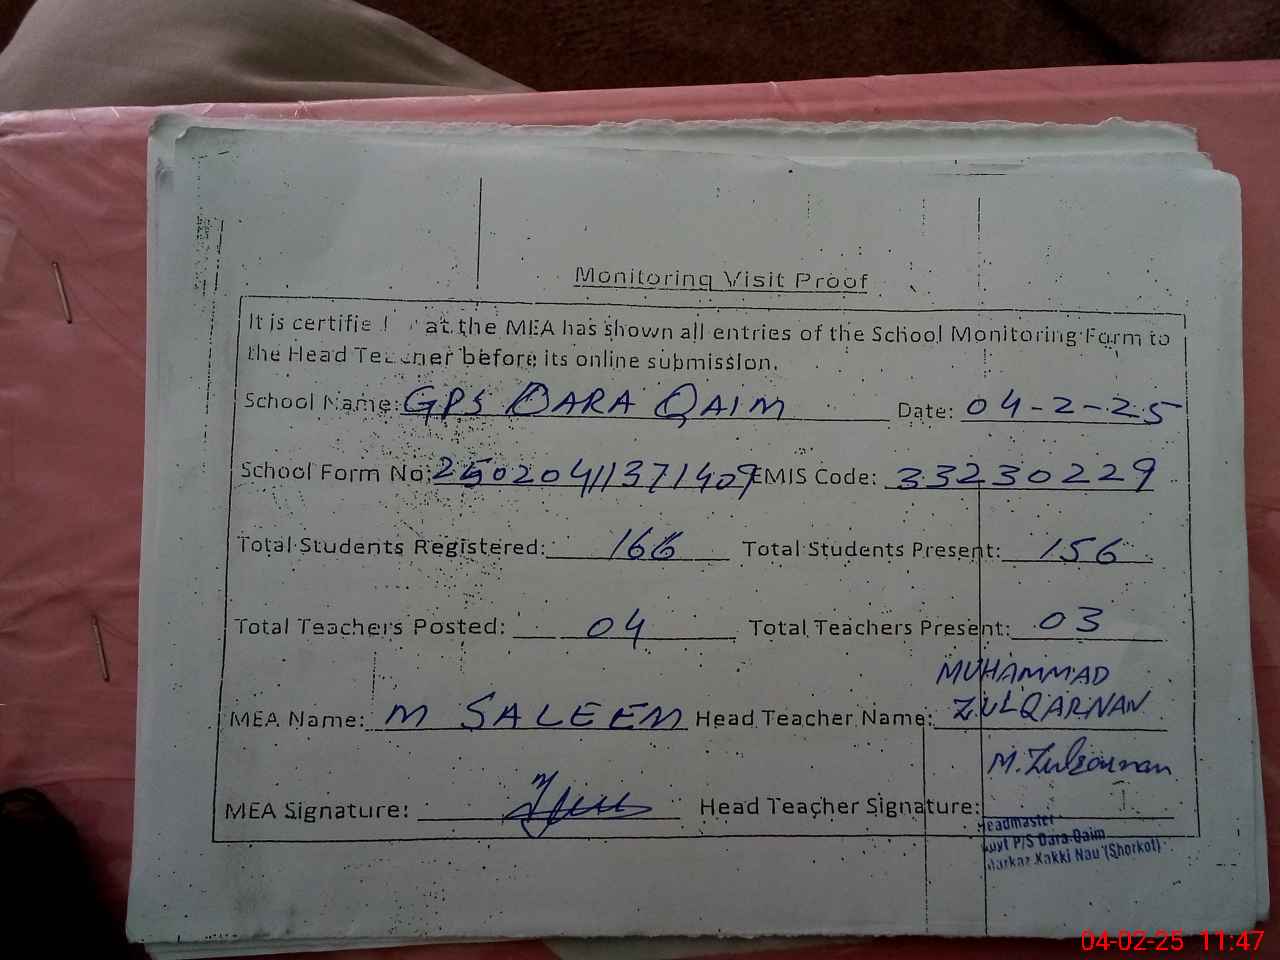 Monitoring Visit Proof
It is certified that the MEA has shown all entries of the School Monitoring Form to
the Head Teacher before its online submission.
School Name: GPS DARA QAIM Date: 04-2-25
School Form No: 25020411371409 EMIS Code: 33230229
Total Students Registered: 166 Total Students Present: 156
Total Teachers Posted: 04 Total Teachers Present: 03
MEA Name: M SALEEM Head Teacher Name: MUHAMMAD
ZULQARNAN
M. Zulqarnan
MEA Signature: Head Teacher Signature:
Headmaster
Govt P/S Dara Qaim
Markaz Kakki Nau (Shorkot)
04-02-25 11:47